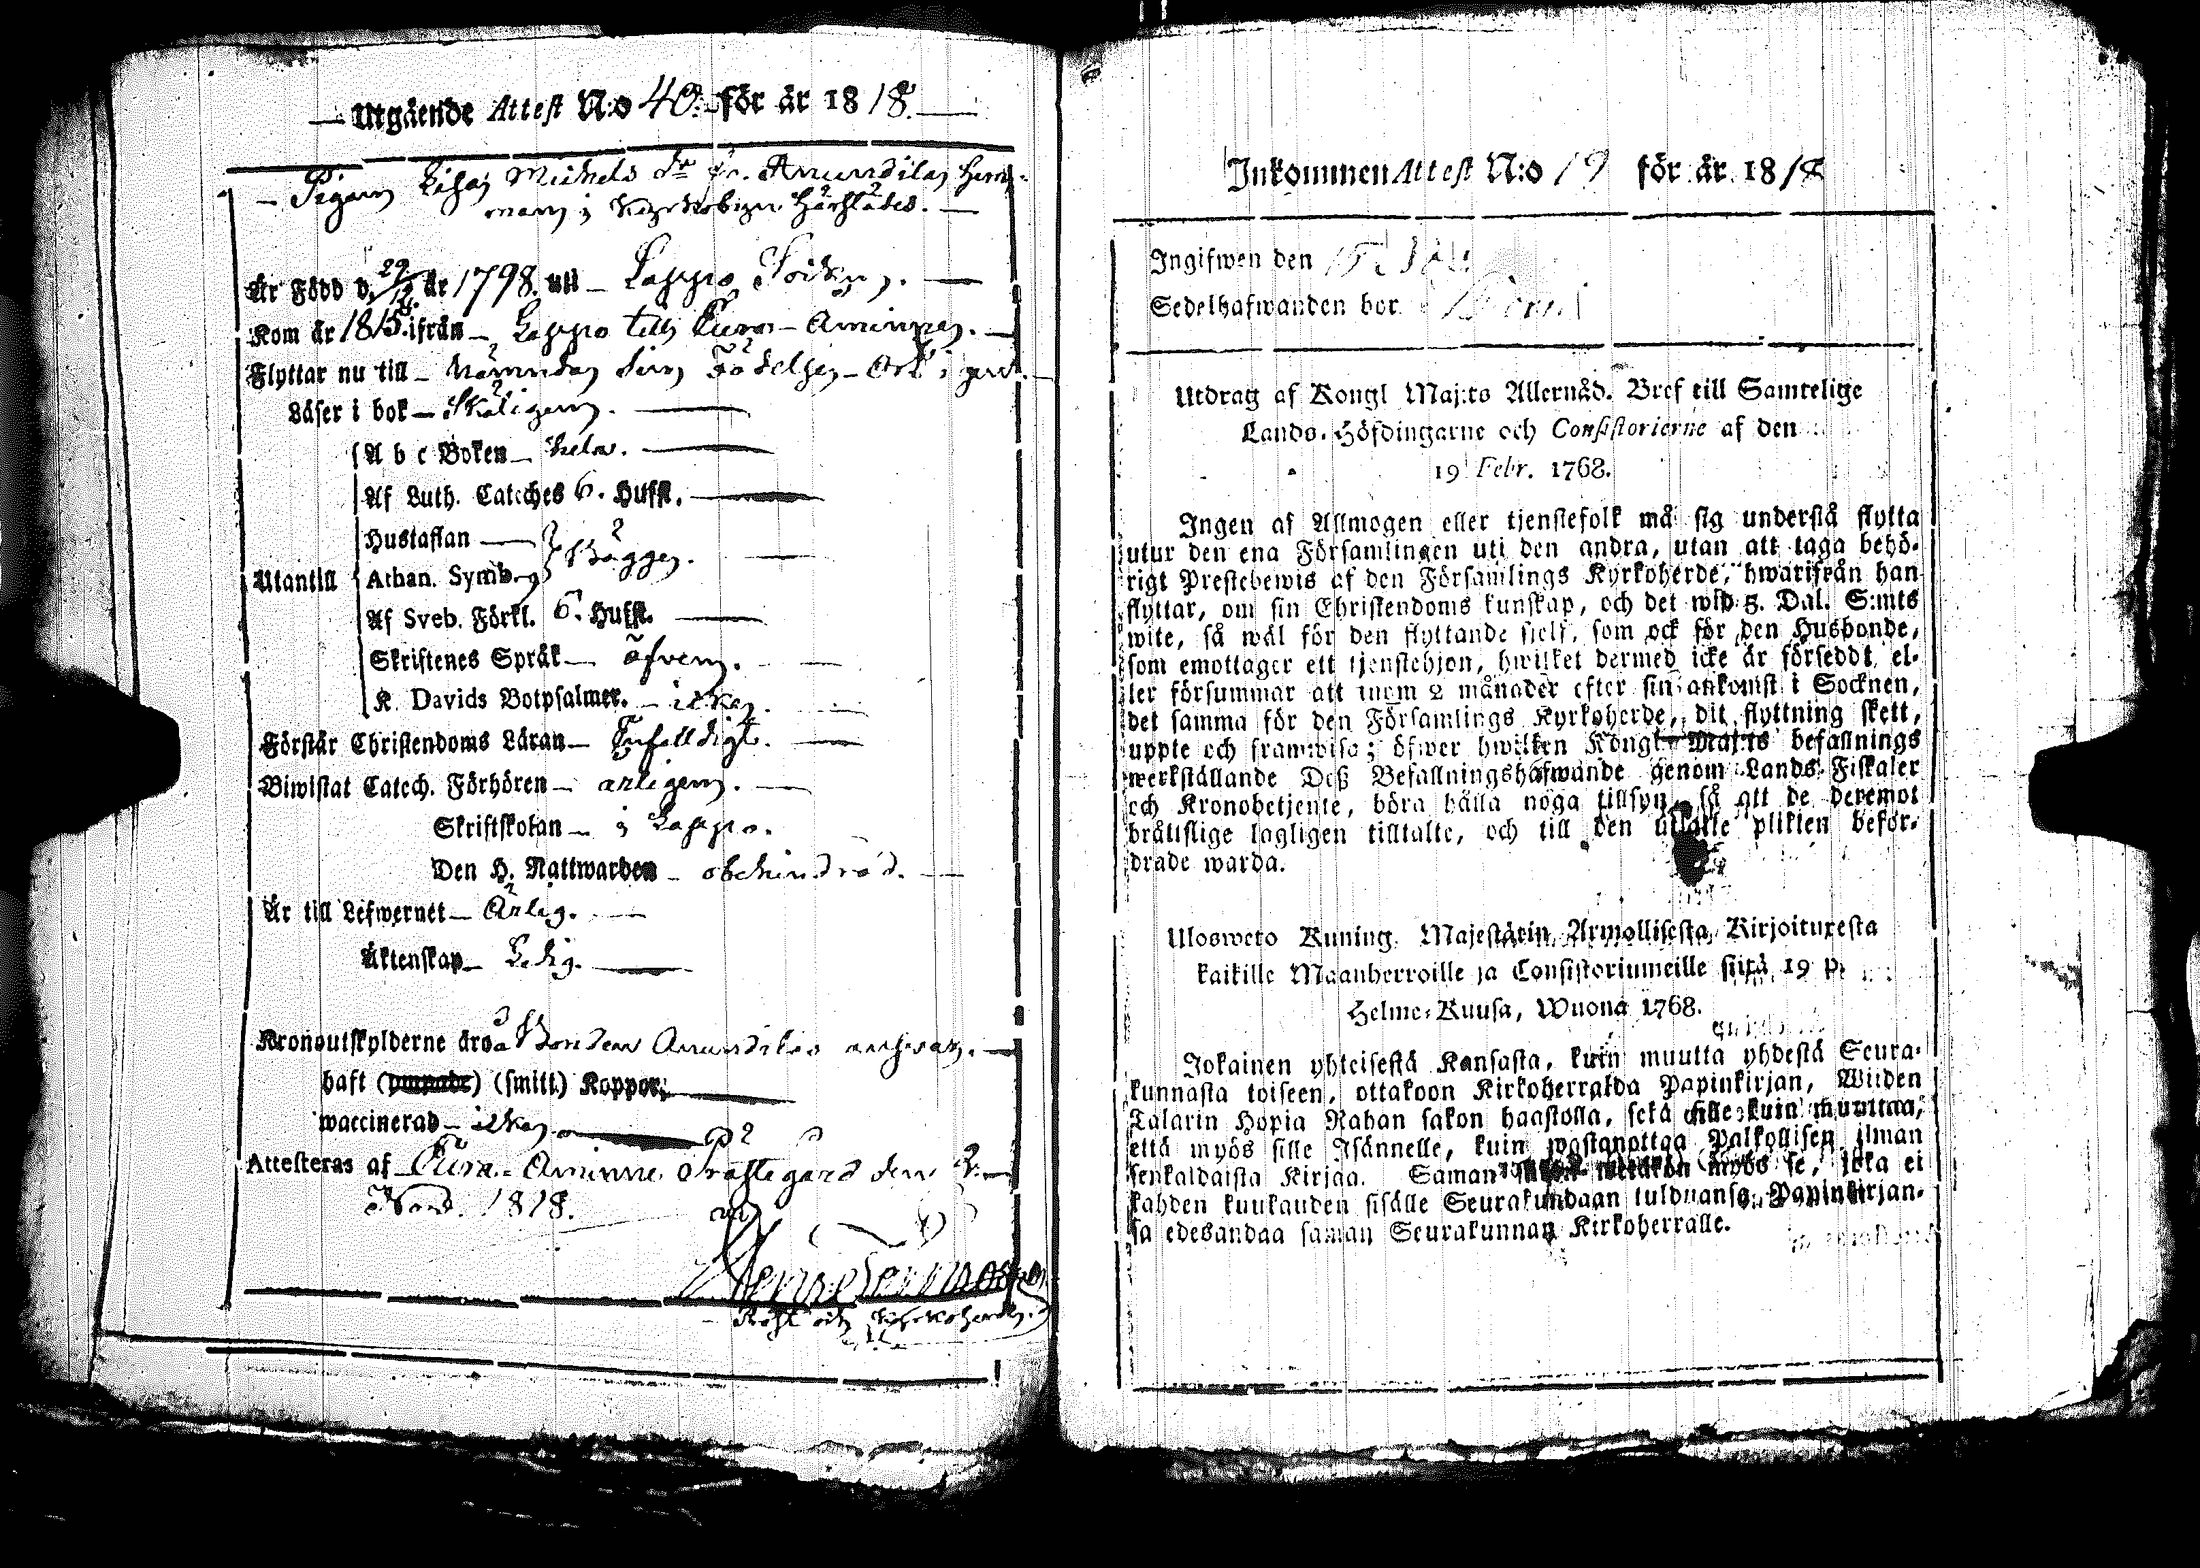 Utgående Attest N:o 40. för år 1818.
Pigan Lisa Michels dr fr. Amundila hem-
man i Kyrkobyn härstädes.
Är Född d. 29/12 år 1798. uti Lappo Sockn.
Kom år 1815. ifrån Lappo till Eura-Åminne.
Flyttar nu till nämnda sin Födelse-Ort igen.
Läser i bok Skäligen.
A b c Boken hela.
Af Luth. Catches 6. Hufst.
Hustaflan
Utantill Athan. Symb. Bägge.
Af Sveb. Förkl. 6. Hufst.
Skriftenes Språk äfven.
K. Davids Botpsalmer. icke.
Förstår Christendoms Läran Enfalldigt.
Biwistat Catech. Förhören årligen.
Skriftskolan i Lappo.
Den H. Nattwarden obehindrad.
Är till Lefwernet Ärlig.
Äktenskap Ledig.
Kronoutskylderne äro å Bonden Amundilas ansvar.
haft (smitt.) Koppor.
waccinerad icke.
Attesteras af Eura-Åminne Prästegård den
Novd. 1818.
Inkommen Attest N:o 19 för år 1818
Ingifwen den
Sedelhafwanden bor
Utdrag af Kongl Maj:ts Allernåd. Bref till Samtelige
Lands-Höfdingarne och Consistorierne af den
19 Febr. 1768.
Ingen af Allmogen eller tjenstefolk må sig understå flytta
utur den ena Församlingen uti den andra, utan att taga behö-
rigt Prestebewis af den Församlings Kyrkoherde, hwarifrån han
flyttar, om sin Christendoms kunskap, och det wid 5. Dal. S:mts
wite, så wäl för den flyttande sjelf, som ock för den Husbonde,
som emottager ett tjenstehjon, hwilket dermed icke är försedt, el-
ler försummar att inom 2 månader efter sin ankomst i Socknen,
det samma för den Församlings Kyrkoherde, dit flyttning skett,
uppte och framwisa; öfwer hwilken Kongl. Maj:ts befallnings
werkställande Deß Befallningshafwande genom Lands-Fiskaler
och Kronobetjente, böra hålla noga tillsyn, så att de deremot
brätslige lagligen tilltalte, och till den utsatte plikten befor-
drade warda.
Ulosweto Kuning. Majestätin Armollisesta Kirjoituxesta
kaikille Maanherroille ja Consistoriumeille siitä 19 p.
Helme-Kuusa, Wuona 1768.
Jokainen yhteisestä Kansasta, kuin muutta yhdestä Seura-
kunnasta toiseen, ottakoon Kirkoherralda Papinkirjan, Wiiden
Talarin Hopia Rahan sakon haastolla, sekä sille kuin muuttaa,
että myös sille Isännelle, kuin wastanottaa Palkollisen ilman
senkaldaista Kirjaa. Saman wetäkön myös se, joka ei
kahden kuukauden sisälle Seurakundaan tulduansa, Papinkirjan-
sa edesandaa saman Seurakunnan Kirkoherralle.